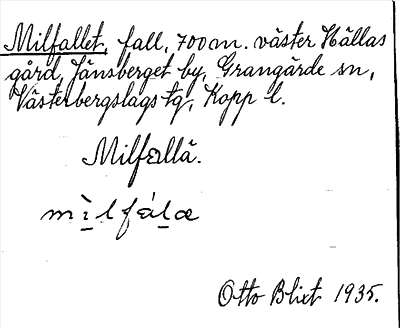 Milfallet, fall, 700 m. väster Hållas
gård, Jänsberget by, Grangärde sn,
Västerbergslags tg, Kopp l.
Milfallä.
mìlfálæ
Otto Blixt 1935.